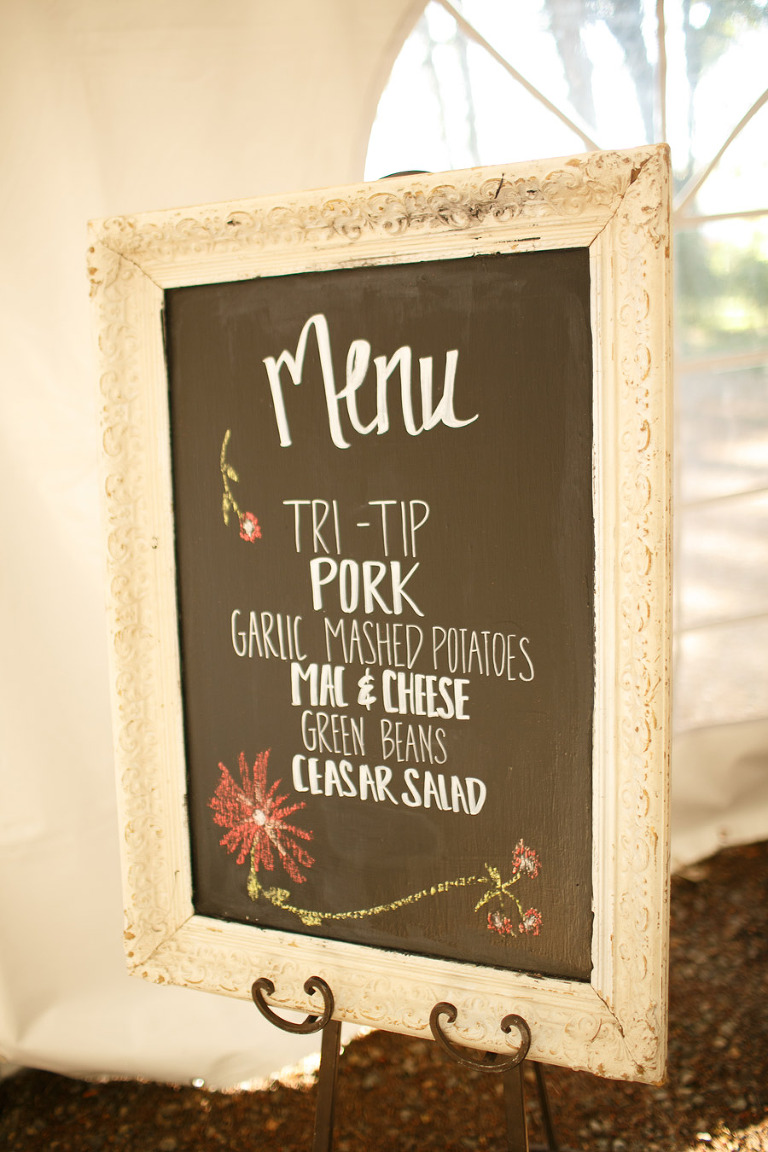 Menu
TRI-TIP
PORK
GARLIC MASHED POTATOES
MAC & CHEESE
GREEN BEANS
CEASAR SALAD